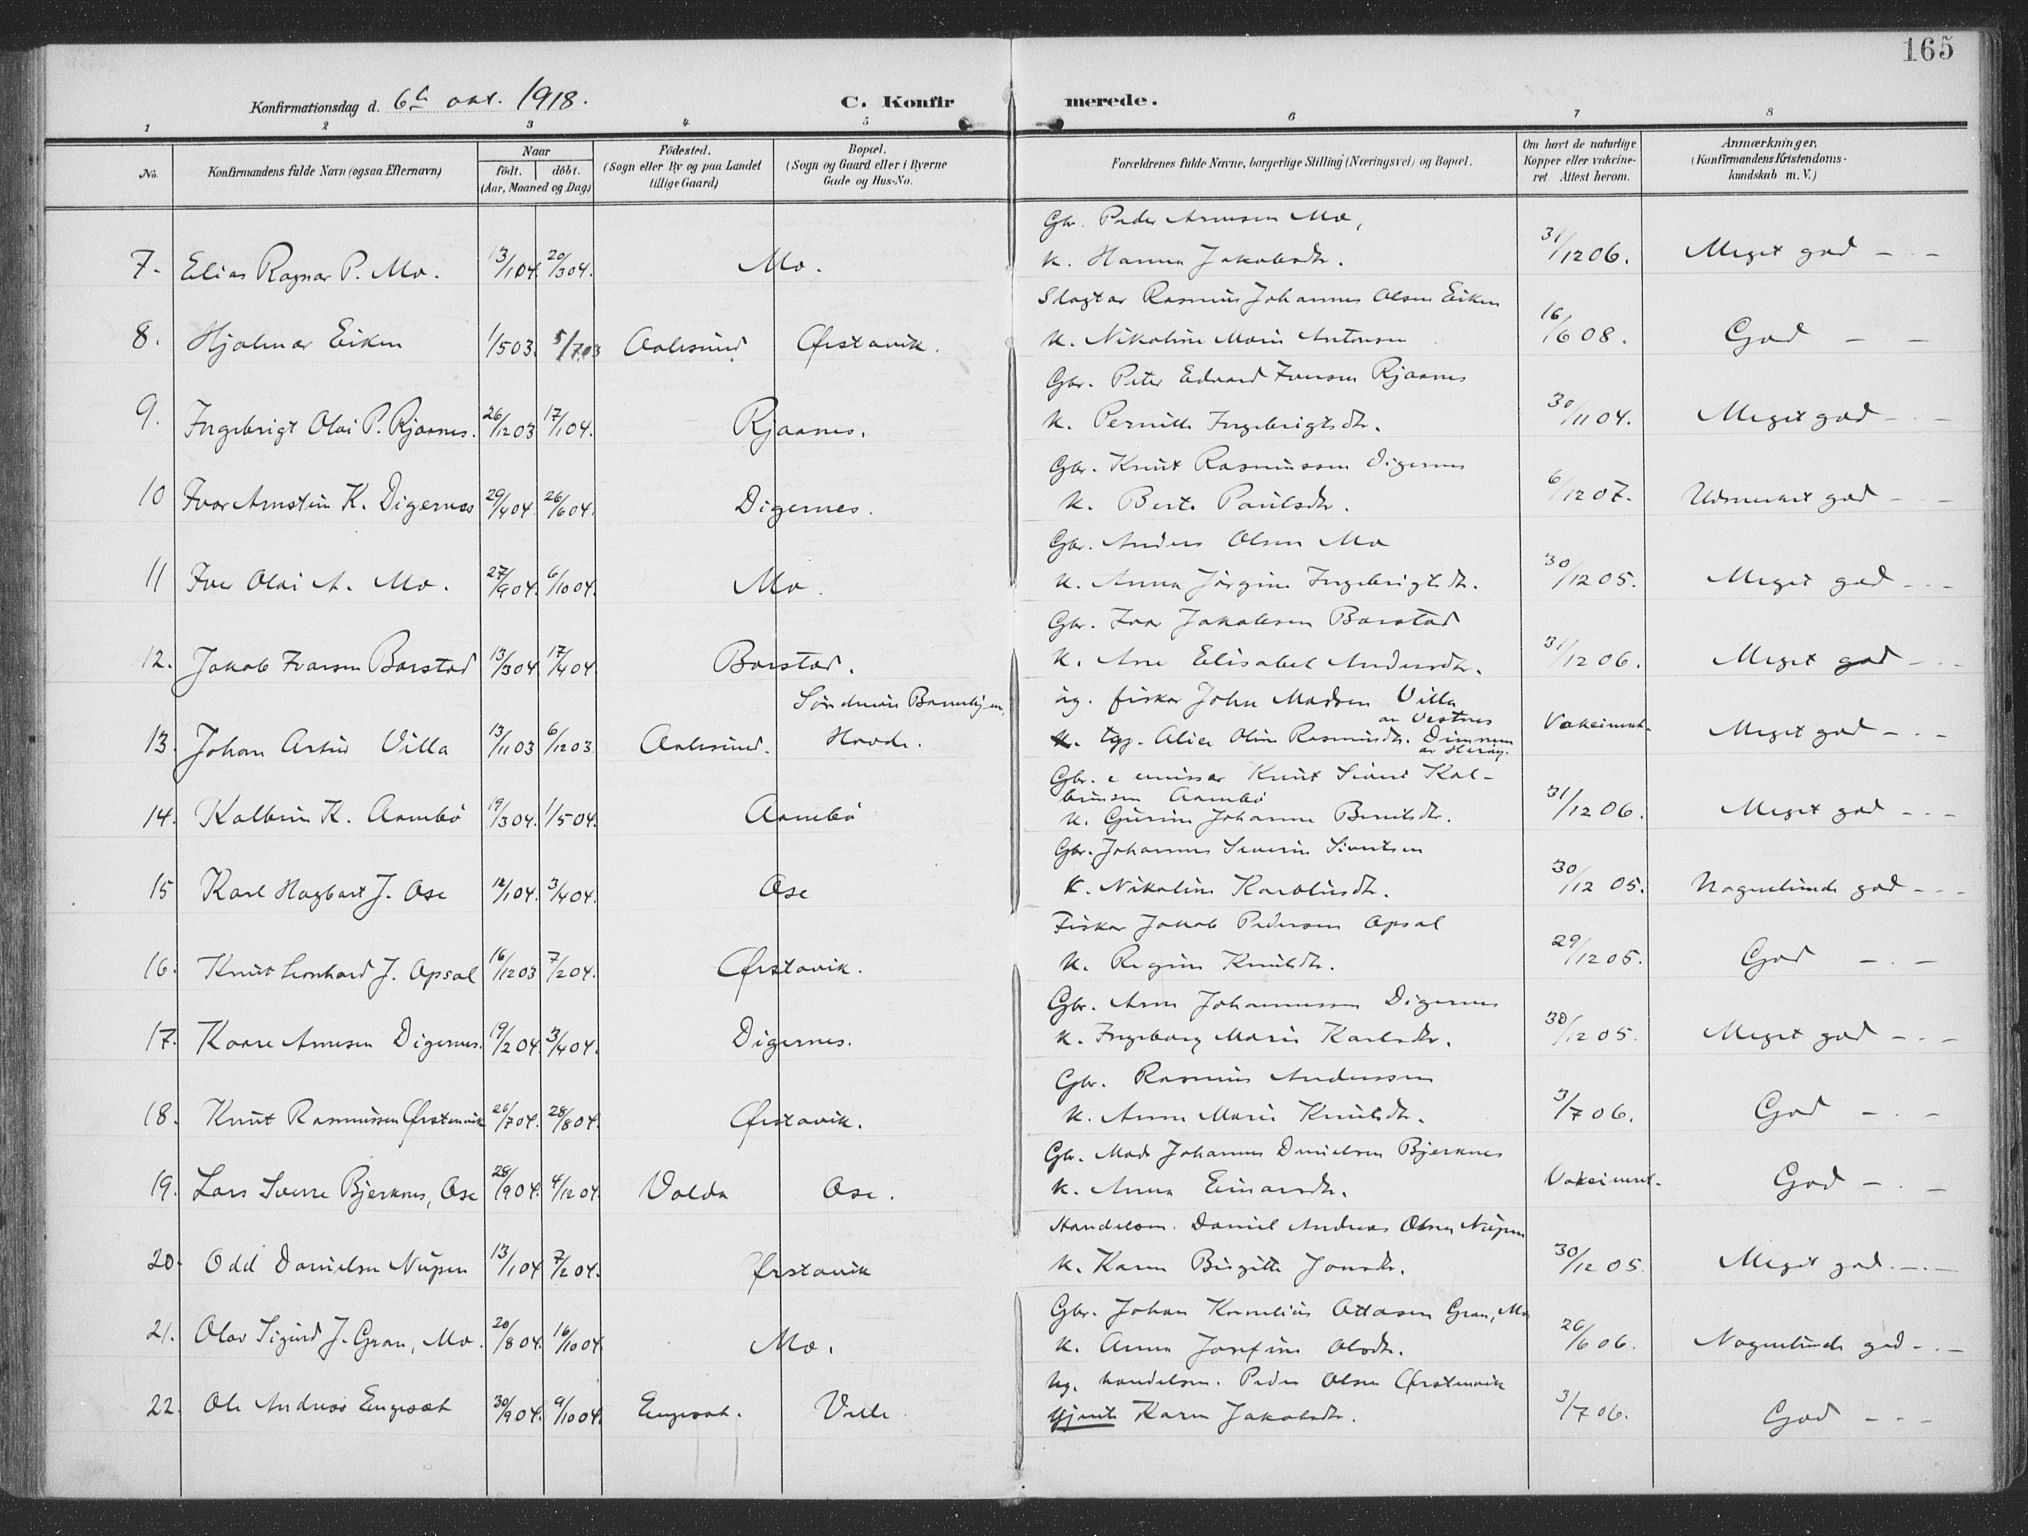 165
Konfirmationsdag d. 6te okt. 1918. C. Konfirmerede.
1 2 3 4 5 6 7 8
No. Konfirmandens fulde Navn (ogsaa Efternavn) Naar født. døbt. (Aar, Maaned og Dag) Fødested. (Sogn eller By og paa Landet tillige Gaard) Bopæl. (Sogn og Gaard eller i Byerne Gade og Hus-No. Forældrenes fulde Navne, borgerlige Stilling (Næringsvei) og Bopæl. Om havt de naturlige Kopper eller vakcineret. Attest herom. Anmærkninger, (Konfirmandens Kristendomskundskab m. V.)
Gbr. Peder Arnesen Mo,
7. Elias Ragnar P. Mo. 13/1 04. 20/3 04. Mo. K. Hanna Jakobsdtr. 31/12 06. Meget god - . -
Slagtar Rasmus Johannes Olsen Eiken
8. Hjalmar Eiken 1/5 03. 5/7 03 Aalesund Ørstavik. K. Nikoline Marie Antonsen 16/6 08. God - -
Gbr. Peter Edvard Iversen Rjaanes
9. Ingebrigt Olai P. Rjaanes. 26/12 03 17/1 04. Rjaanes. K. Pernille Ingebrigtsdtr. 30/11 04. Meget god - . -
Gbr. Knut Rasmussen Digernes
10 Ivar Arnstein K. Digernes 29/4 04. 26/6 04. Digernes. K. Berte Paulsdtr. 6/12 07. Udmerket god - -
Gbr. Anders Olsen Mo
11 Iver Olai A. Mo. 27/9 04. 6/10 04. Mo. K. Anna Jørgine Ingebrigtsdtr. 30/12 05. Meget god - . -
Gbr. Ivar Jakobsen Barstad
12. Jakob Ivarsen Barstad 13/3 04. 17/4 04 Barstad. K. Ane Elisabet Andersdtr. 31/12 06. Meget god - . -
Søndmøre Barnehjem, ug. fisker John Madsen Villa
av Vestnes
13. Johan Artur Villa 13/11 03 6/12 03. Aalesund. Hovde. tgj. Alice Oline Rasmusdtr. Dimmen Vakcineret. Meget god - . -
av Herøy.
Gbr. & emissær Knut Sivert Kolbeinsen Aambø
14. Kolbein K. Aambø 19/3 04. 1/5 04. Aambø K. Gurine Johanne Bentsdtr. 31/12 06. Meget god - . -
Gbr. Johannes Severin Sivertsen
15 Karl Hagbart J. Ose 12/1 04. 3/4 04. Ose K. Nikoline Karolusdtr. 30/12 05. Nogenlunde god - . -
Fisker Jakob Pedersen Opsal
16. Knut Leonhard J. Opsal 16/12 03 7/2 04. Ørstavik. K. Regine Knutsdtr. 29/12 05. God - . -
Gbr. Arne Johannessen Digernes
17. Kaare Arnesen Digernes. 19/2 04. 3/4 04. Digernes. K. Ingeborg Marie Karlsdtr. 30/12 05. Meget god - . -
Gbr. Rasmus Anderssen
18. Knut Rasmussen Ørstenvik 26/7 04. 28/8 04. Ørstavik. K. Anne Marie Knutsdtr. 3/7 06. God - . -
Gbr. Mads Johannes Danielsen Bjerknes
19. Lars Sverre Bjerknes, Ose 28/9 04. 4/12 04. Volda Ose. K. Anna Einarsdtr. Vakcineret. God - . -
Handelsm. Daniel Andreas Olsen Nupen
20. Odd Danielsen Nupen 13/1 04. 7/2 04. Ørstavik K. Karen Birgitte Jonsdtr. 30/12 05. Meget god. - . -
Gbr. Johan Kornelius Ottosen Gran, Mo
21. Olav Sigurd J. Gran, Mo. 20/8 04. 16/10 04. Mo. K. Anna Josefine Olsdtr. 26/6 06. Nogenlunde god - . -
Ug. handelsm. Peder Olsen Ørstenvik
22. Ole Andreas Engeset 30/9 04. 9/10 04. Engeset. Velle. Karen Jakobsdtr. 3/7 06. God - . -